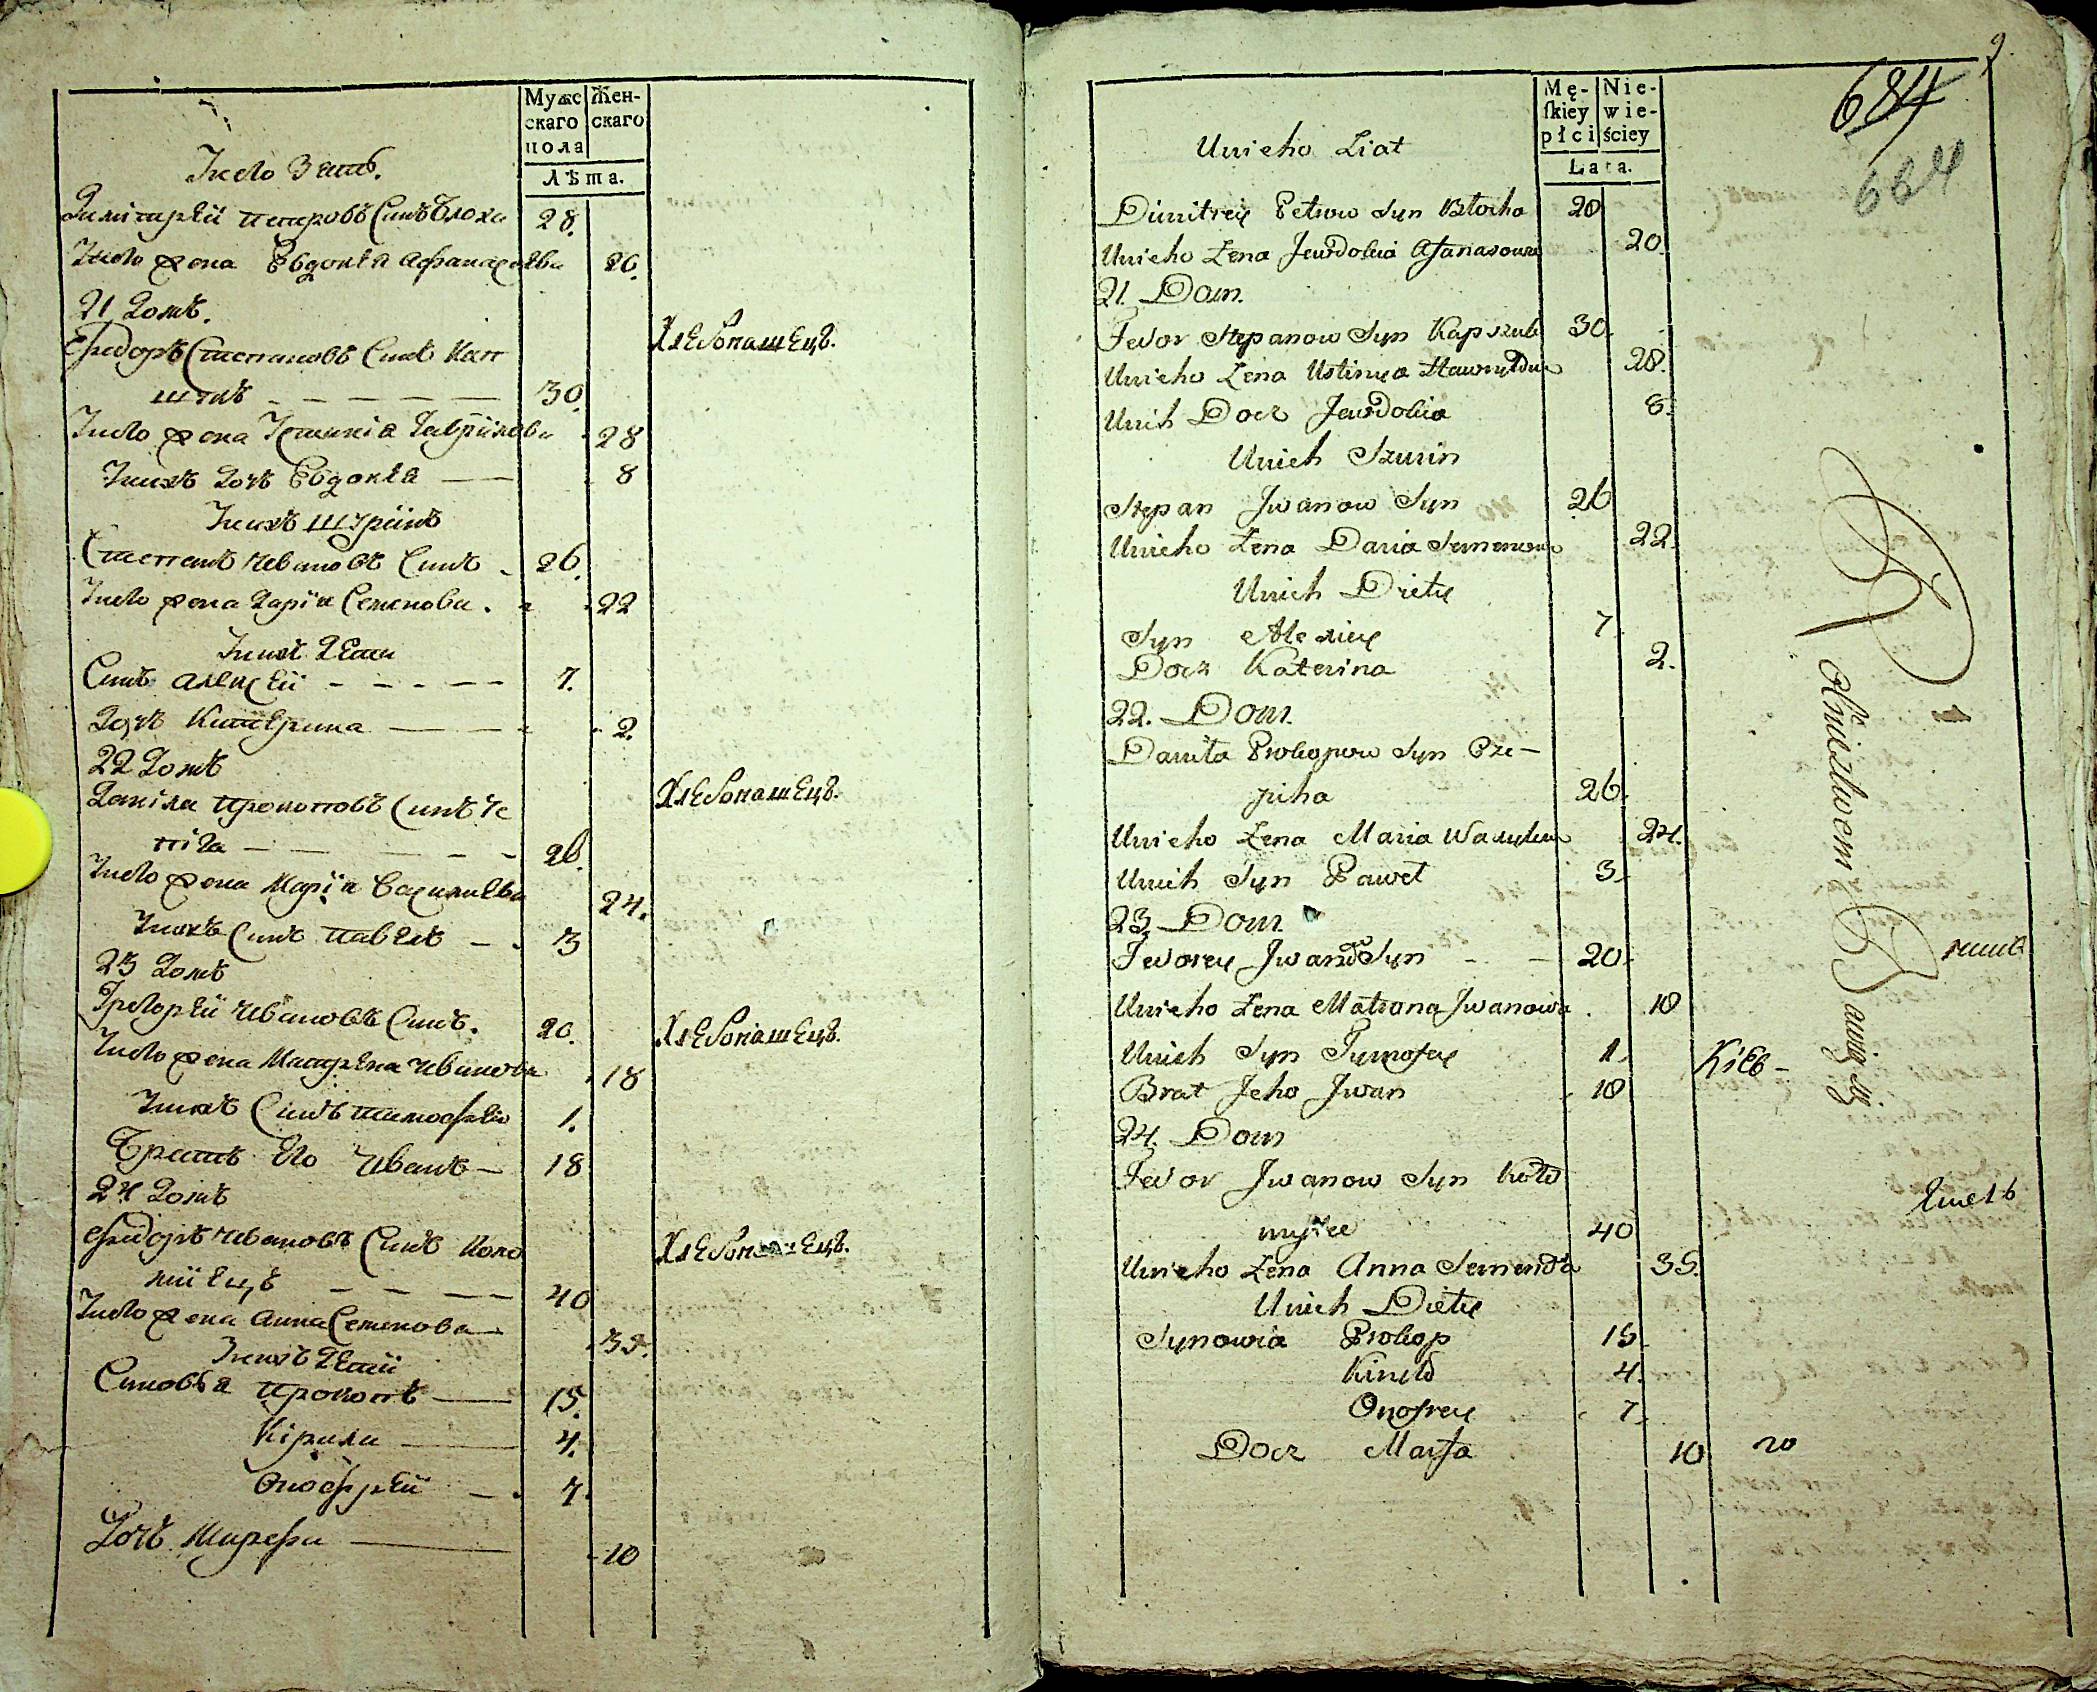 Мужескаго пола
Женскаго
Лѣта.
Унего Зать.
Димітрей петровъ Синъ Блоха 28.
Унего жена Евдокѣя афанасѣева 20.
21 Домъ.
Феодоръ Степановъ Синъ Кап
шукъ 30.
Хлебопашецъ.
Унего жена Устинія Гаврилова 28
Унихъ дочъ Евдокѣя 8
Унихъ Шуринъ
Степанъ Ивановъ Синъ 26.
Унего жена Дарія Семенова. 22
Унихъ Дети
Синъ алексѣй 7.
Дочъ Катерина 2.
22 Домъ
Даніла прокоповъ Синъ Че
піга 26.
Хлебопашецъ.
Унего жена Марія Василиева 24.
Унихъ Синъ павелъ 3
23 Домъ
Григорѣй Ивановъ Синъ. 20.
Хлебопашецъ.
Унего жена Матрена Иванова 18
Унихъ Синъ тимофѣй 1.
Братъ Его Иванъ 18
24 Домъ
Феодоръ Ивановъ Синъ Коло
мііецъ 40
Хлебопашецъ.
Унего жена Анна Семенова 35.
Унихъ Дети
Синовья прокопъ 15.
Кірила 4.
Онофрѣй 7.
Дочъ Марфа 10
9.
684
684
Męskiey płci
Niewieściey
Lata.
Unieho Ziat
Dimitrey Petrow Syn Błocha 28
Unieho Zena Jewdokia Afanasowa 20.
21. Dom.
Fedor Stepanow Syn Kapszuk 30.
Unieho Zena Ustinya Hawryłowa 28.
Unich Docz Jewdokia 8.
Unich Szurin
Stepan Jwanow Syn 26
Unieho Zena Daria Semenowa 22.
Unich Diety
Syn Alexiey 7.
Docz Katerina 2.
22. Dom.
Daniła Prokopow Syn Cze-
piha 26.
Unieho Zena Maria Wasylewa 24.
Unich Syn Paweł 3.
23. Dom.
Jwanow Syn 20.
Unieho Zena Matrona Jwanowa. 18
Unich Syn Tymofey 1.
Кіев-
Brat Jeho Jwan 18
24. Dom
Fedor Jwanow Syn Koło
myiec 40
Unieho Zena Anna Semenowa 35.
Unich Diety
Synowia Prokop 15.
Kiryło 4.
Onofrey 7.
Docz Marfa 10
го